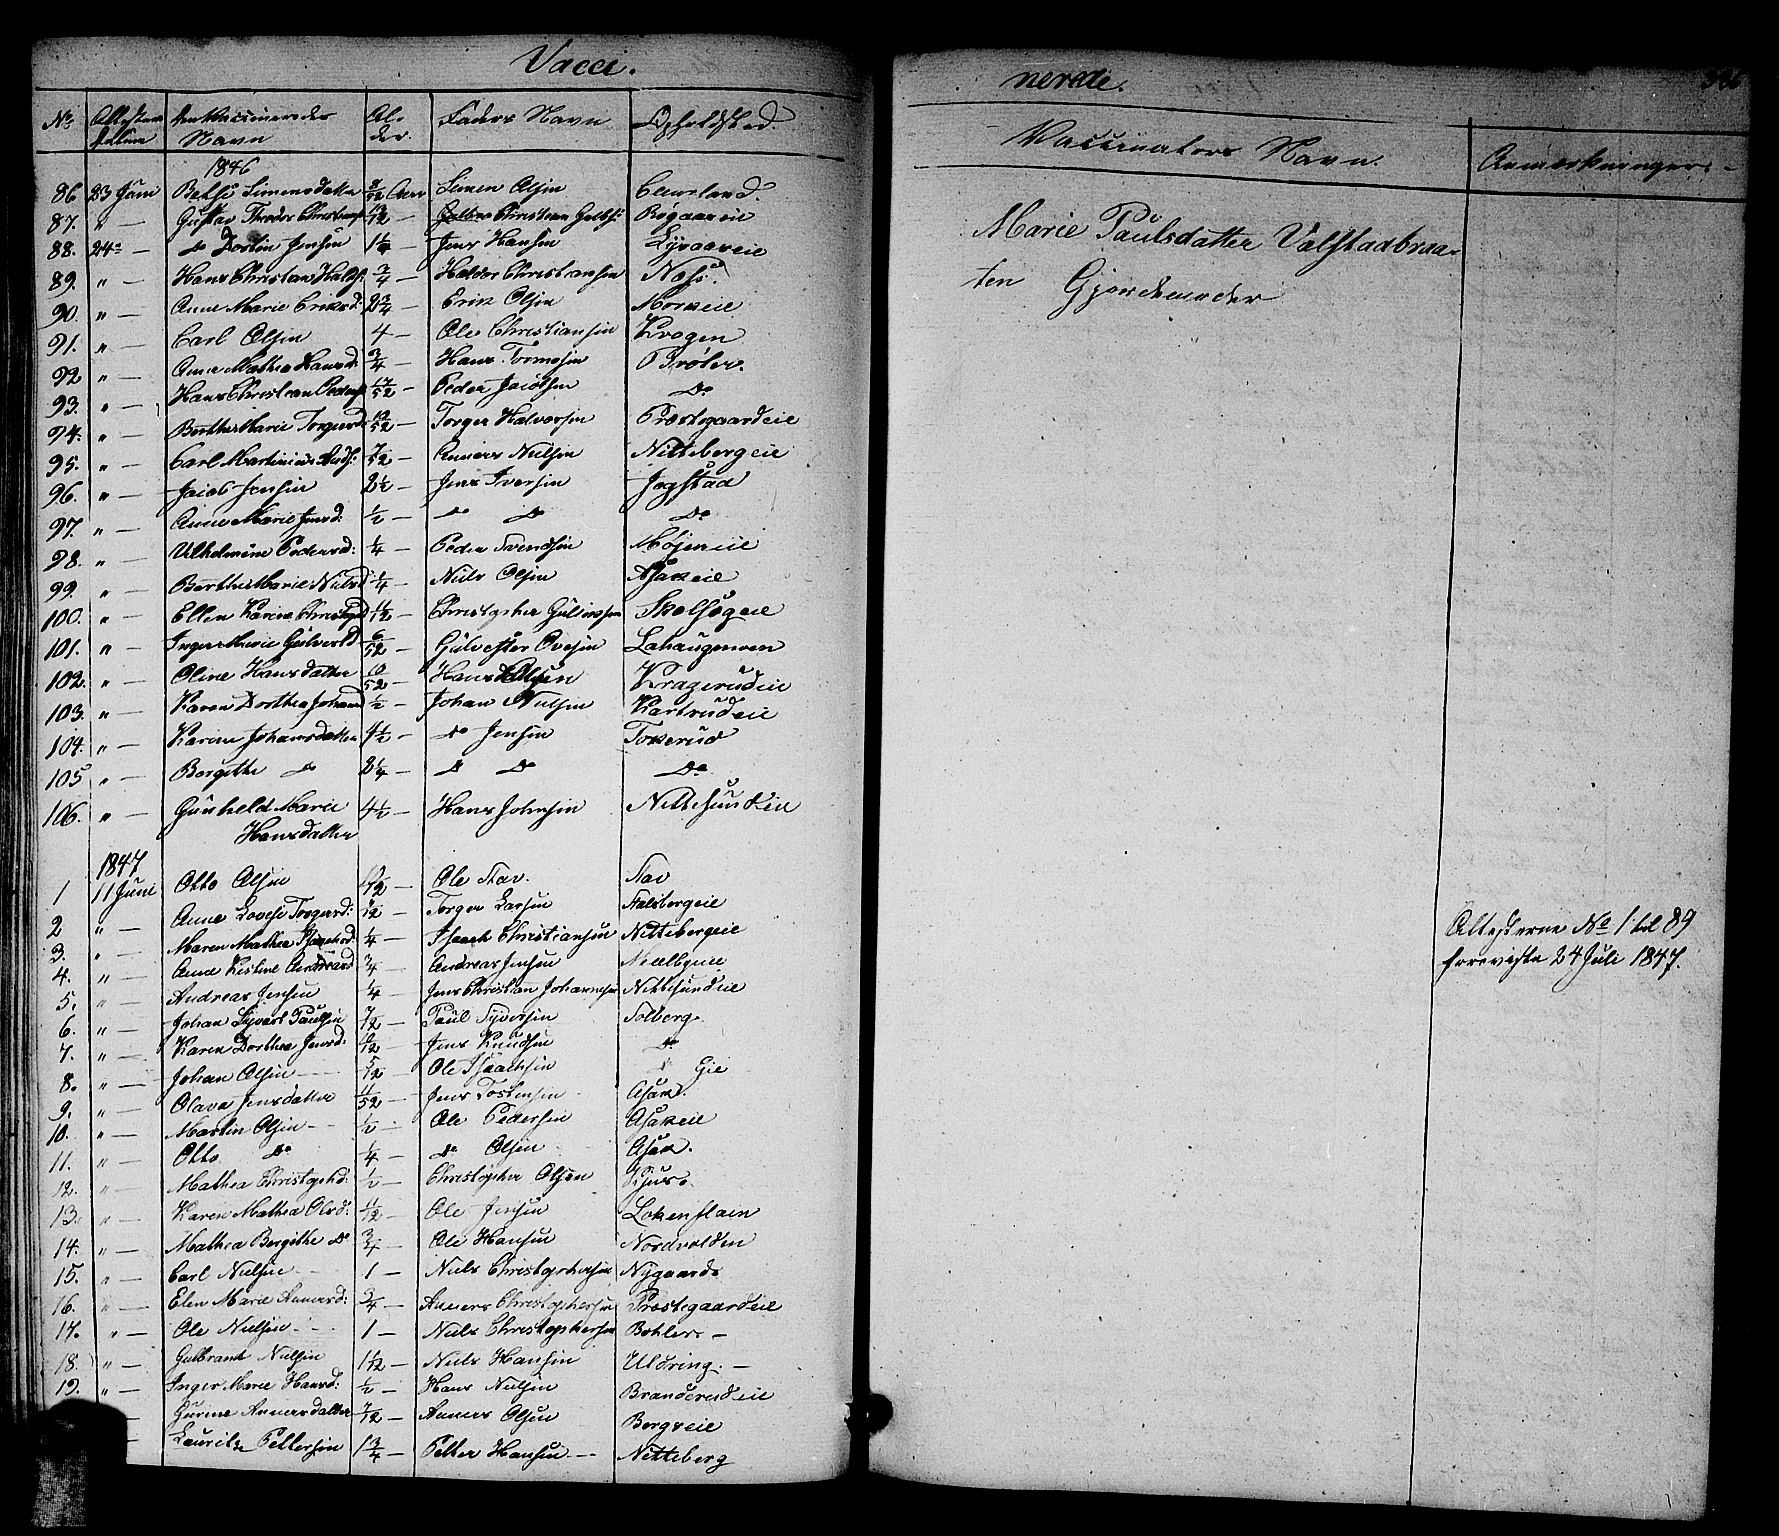 Vacci.
No | Attestens datum | den Vaccineredes Navn | Al- der. | Faders Navn | Opholdsted.
1846
86 | 23 Juni | Betsi Simensdatter | Aar | Simen Olsen | Caurland.
87. | " — | Gustav Theodor | Christian
88. | 24de | Do Dortin Jensen | Jens Hansen
89. | " — | Hans Christian Haldsr | 3/4 — | Haldor Christiansen | Næss.
90. | " — | Anne Marie Eriksd: | 2 3/4 — | Erik Olsen | Morkeie
91. | " — | Carl Olsen | 4 — | Ole Christiansen | Krogen
92 | " — | Anne Mathea Hansd: | 3/4 — | Hans Tormosen | Brøter.
93. | " — | Hans Christian Peders | 17/52 — | Peder Jacobsen | Do
94. | " — | Berthe Marie Torgersd | 12/52 — | Torger Halvorsen | Præstegaardeie
95. | " — | Carl Martinius Ands: | 7/52 — | Anners Nielsen | Nittebergeie
96. | " — | Jacob Jensen | 2 1/2 — | Jens Iversen | Jogstad
97. | " — | Anne Marie Jensd: | 1/2 — | Do Do | Do
98. | " — | Vilhelmine Pedersd: | 1/4 — | Peder Svendsen | Møjeneie
99. | " — | Berthe Marie Nielsd | 1/4 — | Niels Olsen | Asakeie
100. | " — | Ellen Karine Christophd | 11/12 — | Christopher | Skolsegeie
101. | " — | Inger Marie Gulvestd | 6/52 — | Gulvester Ovesen | Lahaugmoen
102. | " — | Oline Hansdatter | 10/52 — | Hans Olsen | Kragerudeie
103. | " — | Karen Dorthea Johansd | 1/2 — | Johan Nielsen | Kartrudeie
104. | " — | Karine Johansdatter | 4 1/2 — | Do Jensen | Tokerud
105 | " — | Bergithe Do | 2 1/4 — | Do Do | Do
106. | " — | Gunhild Marie | 4 1/2 — | Hans Johnsen | Nittesundeie
Hansdatter
1847
1 | 11 Juni | Otto Olsen | Ole Stav. | Stav
2 | " — | Anne Lovise Torgersd: | Torger Larsen | Fladsbergeie
3. | " — | Maren Mathea Isachsd | 1/4 — | Isach Christiansen | Nittebergeie
4. | " — | Anne Kistine Andreasd | 3/4 — | Andreas Jensen
5. | " — | Andreas Jensen | 1/4 — | Jens Christian Johannesen | Nittesundeie
6. | " — | Johan Sigvart Paulsen | 7/12 — | Paul Syversen | Solberg.
7. | " — | Karen Dorthea Jensd: | Jens Knudsen | Do
8. | " — | Johan Olsen — | 5/12 — | Ole Isaachsen | Do Eie
9. | " — | Olava Jensdatter | 11/52 — | Jens Tostensen | Asak.
10. | " — | Martin Olsen — | 1/2 — | Ole Pedersen | Asakeie
11. | " — | Otto Do | 1/4 — | Do Olsen | Asak.
12. | " — | Mathea Christophd: | 1/2 — | Christopher Olsen | Kjus.
13. | " — | Karen Mathea Olsd: | 11/12 — | Ole Jensen | Lokenflaen
14. | " — | Mathea Bergithe Do | 3/4 — | Ole Hansen | Nordvolden
15. | " — | Carl Nielsen — | 1 — | Niels Christophersen | Nygaard
16. | " — | Elen Marie Annersd: | 3/4 — | Anners Christophersen | Præstegaardeie
17. | " — | Ole Nielsen — | 1 — | Niels Christophersen | Bohler. —
18. | " — | Gulbrant Nielsen | 1 1/12 — | Niels Hansen | Uldring. —
19. | " — | Inger Marie Hansd: | 1/2 — | Hans Nielsen | Branderudeie
— | Gurine Annersdatter | 7/12 — | Anners Olsen | Bergseie
— | Lauritz Pettersen | 1 3/4 — | Petter Hansen — | Nitteberg
nerede.
Vaccinators Navn. | Anmærkninger. —
Marie Paulsdatter Valstadbraa-
ten Gjordemoder
Attesterne No 1 til 89
foreviste 24 Juli 1847.